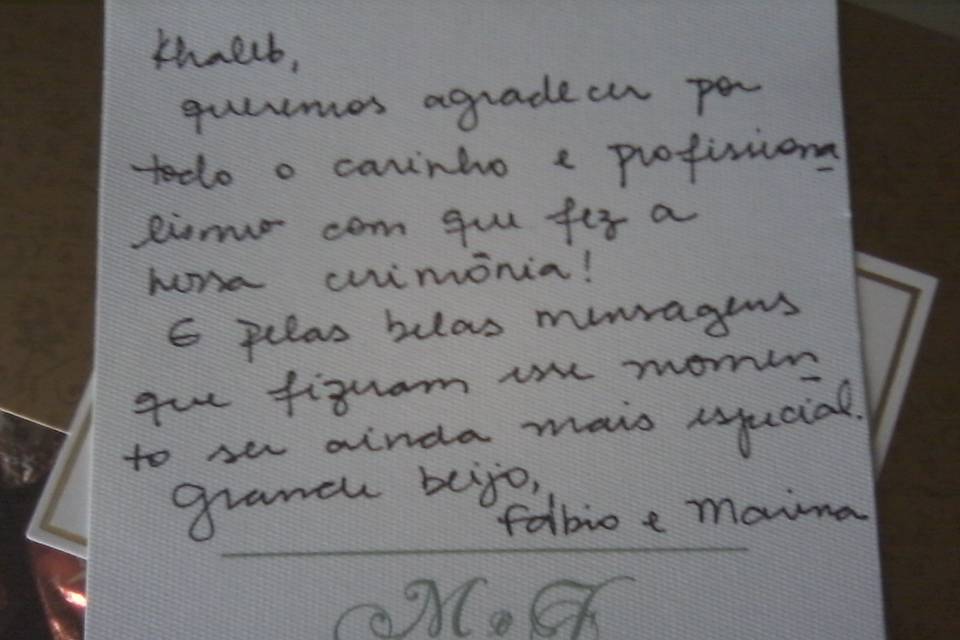 Khaleb,
queremos agradecer por
todo o carinho e profissiona
lismo com que fez a
nossa cerimônia!
E pelas belas mensagens
que fizeram esse momen
to ser ainda mais especial.
Grande beijo,
Fábio e Marina
M & F